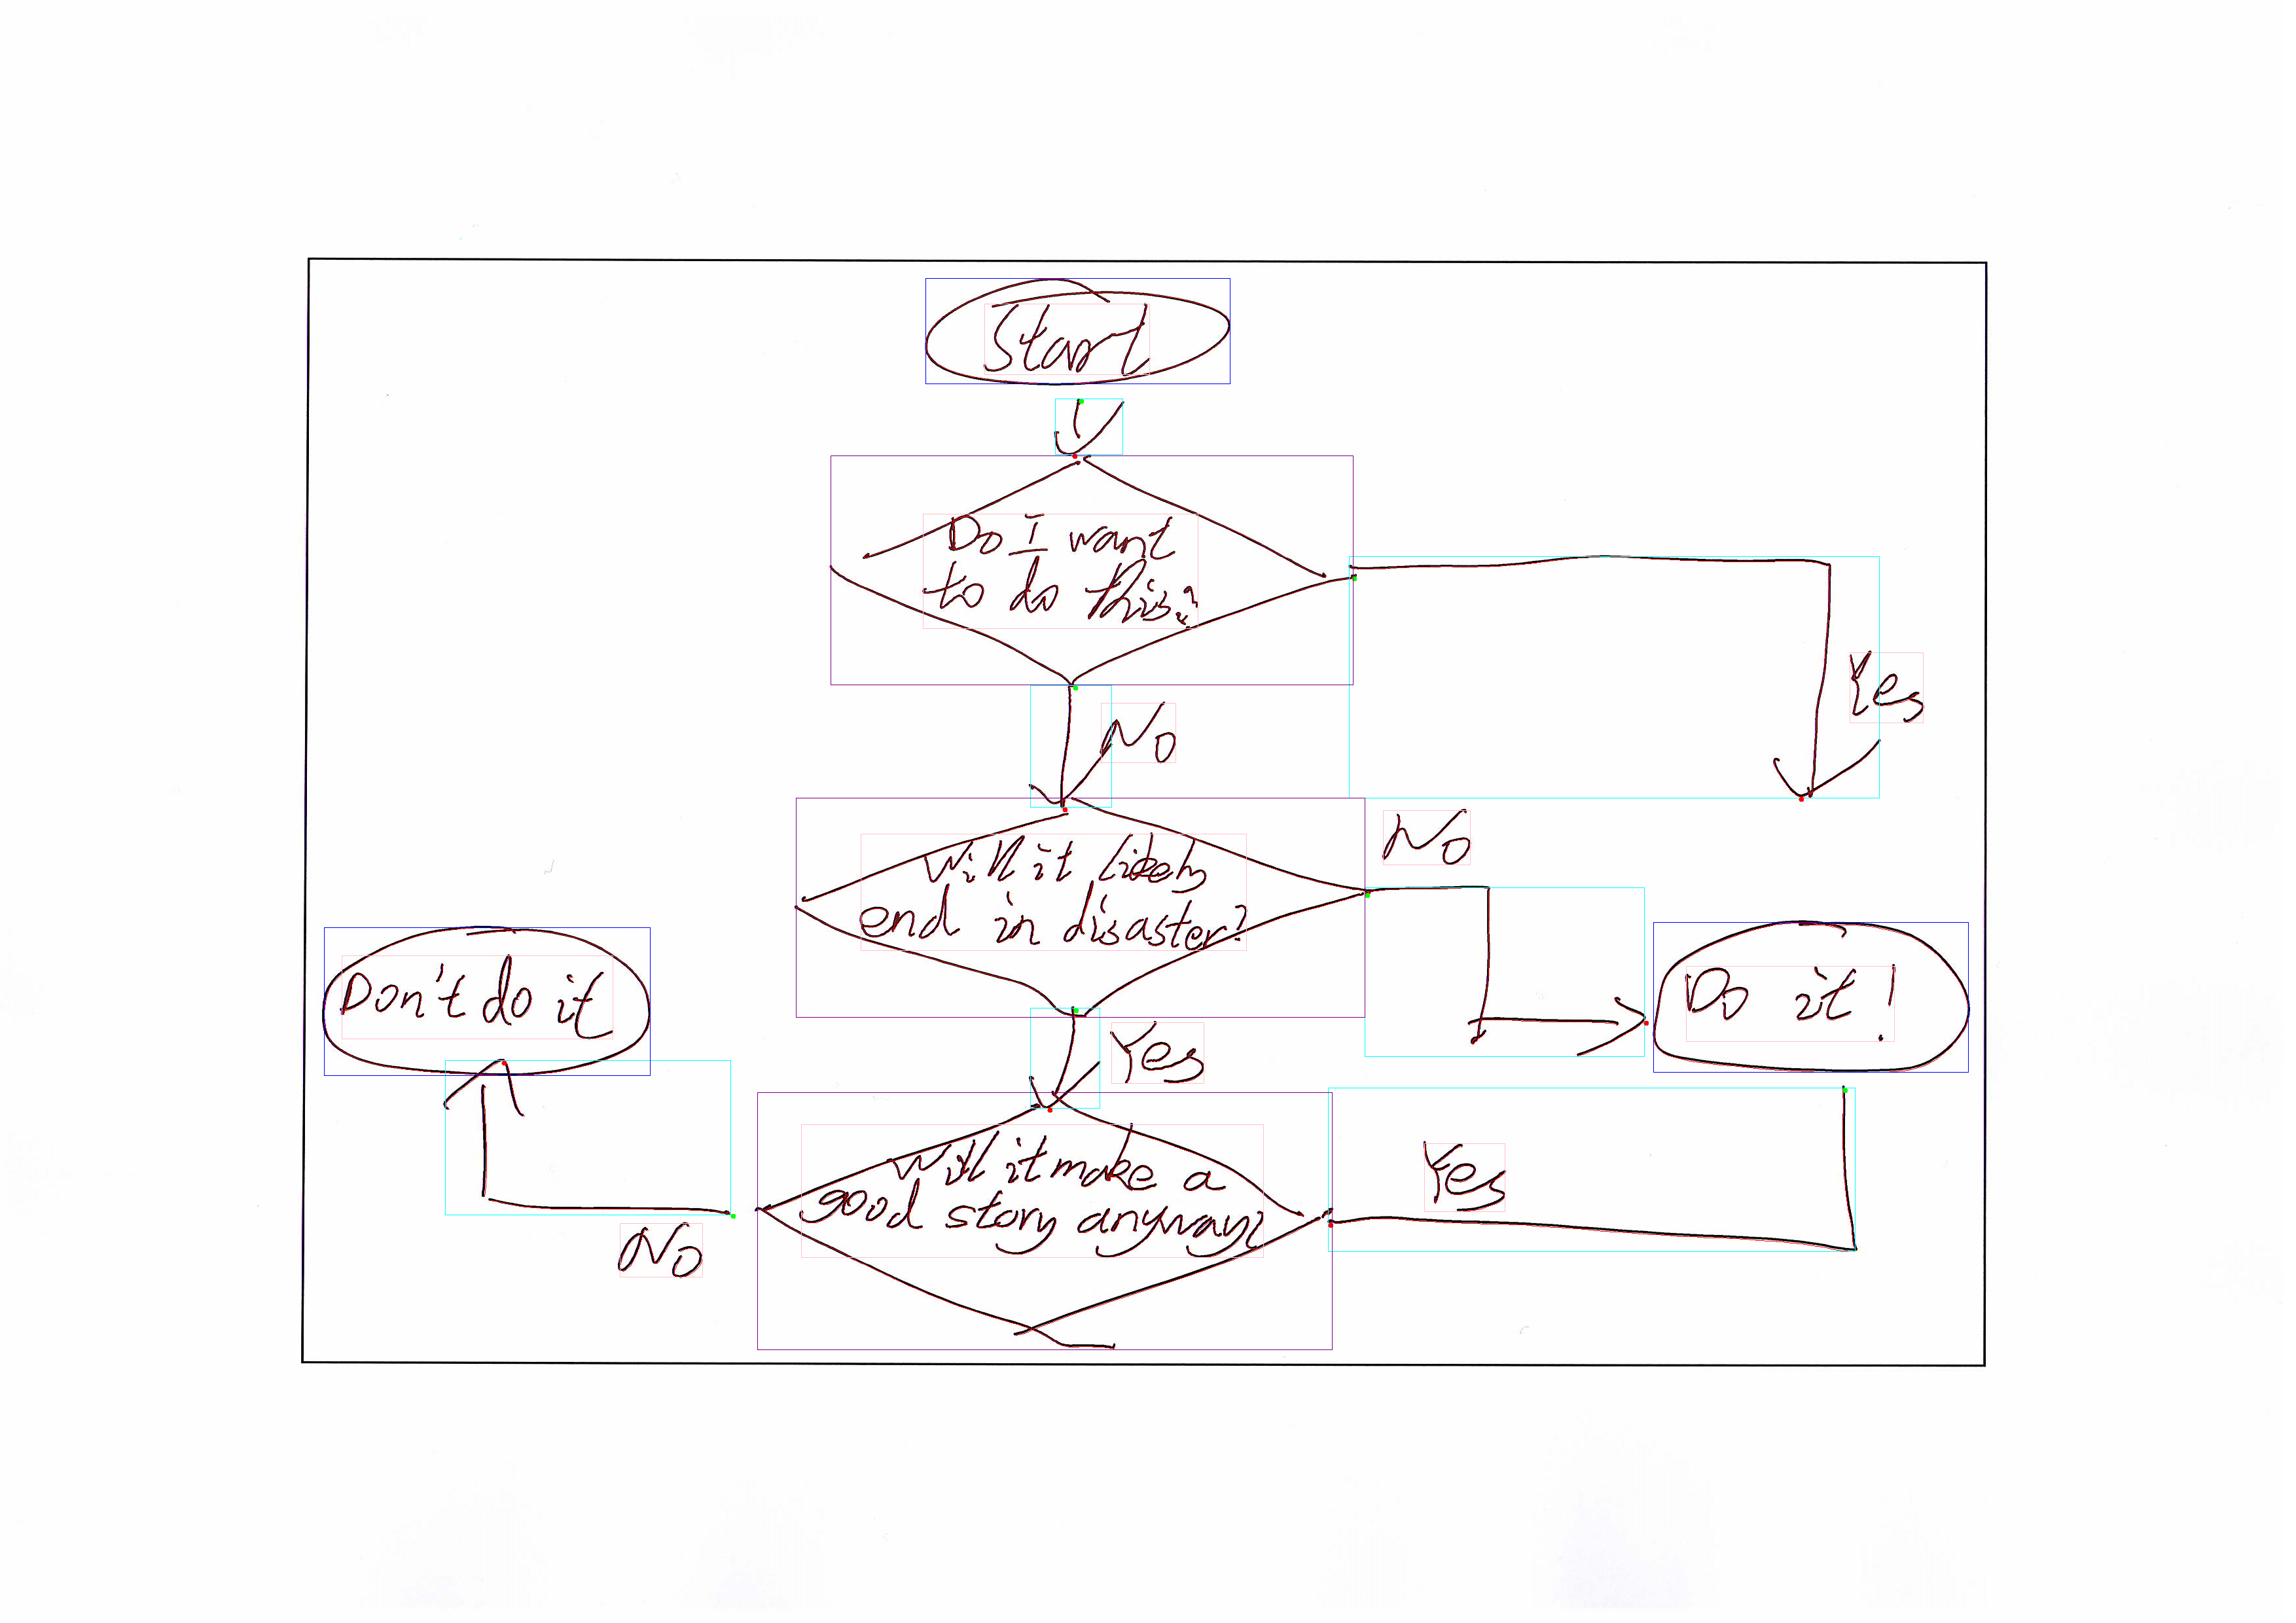 Start
Do I want
to do this?
Yes
No
No
Will it likely
end in disaster?
Don't do it
Do it!
Yes
Will it make a
good story anyway?
Yes
No